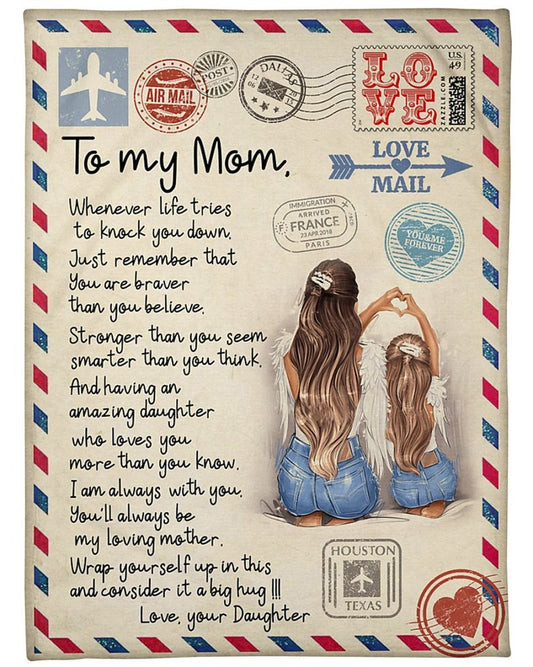 AIR MAIL
POST
DALLAS
12 20
06 15
LOVE
U.S.
49
ZAZZLE.COM
To my Mom,
LOVE
MAIL
IMMIGRATION
ARRIVED
F FRANCE
23 APR 2018
PARIS
YOU&ME
FOREVER
Whenever life tries
to knock you down,
Just remember that
You are braver
than you believe,
Stronger than you seem
smarter than you think,
And having an
amazing daughter
who loves you
more than you know.
I am always with you,
You'll always be
my loving mother.
Wrap yourself up in this
and consider it a big hug !!!
Love, your Daughter
HOUSTON
TEXAS